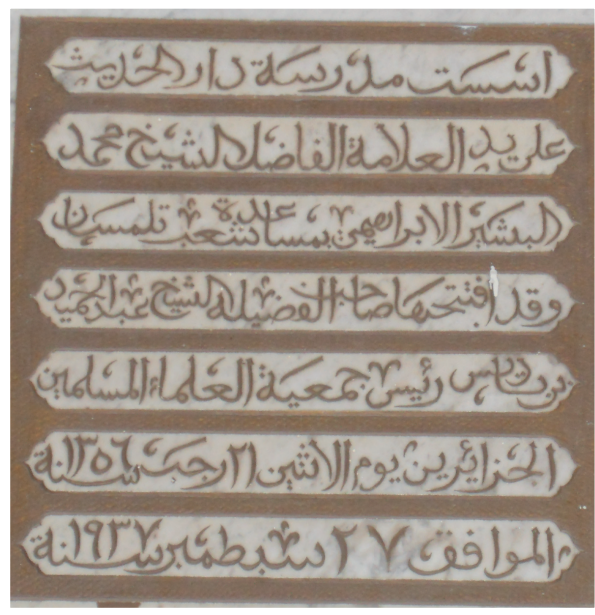 اسست مدرسة دار الحديث
على يد العلامة الفاضل الشيخ محمد
البشير الابراهيمي بمساعدة شعب تلمسان
وقد افتتحها صاحب الفضيلة الشيخ عبد الحميد
بن باديس رئيس جمعية العلماء المسلمين
الجزائريين يوم الاثنين ٢١ رجب سنة ١٣٥٦
الموافق ٢٧ سبطمبر سنة ١٩٣٧